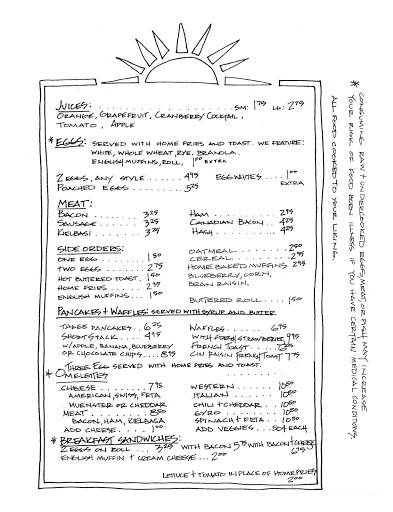 JUICES: SM: 1.75 LG: 2.75
ORANGE, GRAPEFRUIT, CRANBERRY COCKTAIL,
TOMATO, APPLE
* EGGS: SERVED WITH HOME FRIES AND TOAST. WE FEATURE:
WHITE, WHOLE WHEAT, RYE, BRANOLA.
ENGLISH MUFFINS, ROLL, 1.00 EXTRA
2 EGGS, ANY STYLE ..... 4.95
POACHED EGGS ..... 5.25
EGG WHITES ... 1.00
EXTRA
MEAT:
BACON ........ 3.25
SAUSAGE ...... 3.25
KIELBASI ..... 3.25
HAM ........ 2.95
CANADIAN BACON .. 4.25
HASH ....... 4.25
SIDE ORDERS:
ONE EGG ..... 1.50
TWO EGGS .... 2.75
HOT BUTTERED TOAST. 1.50
HOME FRIES ... 2.50
ENGLISH MUFFINS ... 1.50
OATMEAL ....... 2.50
CEREAL ....... 2.95
HOME BAKED MUFFINS 2.25
BLUEBERRY, CORN,
BRAN RAISIN.
BUTTERED ROLL .... 1.50
PANCAKES + WAFFLES SERVED WITH SYRUP AND BUTTER
THREE PANCAKES. 6.75
SHORT STACK .... 4.95
W/APPLE, BANANA, BLUEBERRY
OR CHOCOLATE CHIPS.... 8.95
WAFFLES ...... 6.75
WITH FRESH STRAWBERRIES 9.95
FRENCH TOAST ... 7.25
CIN RAISIN FRENCH TOAST 7.75
THREE EGG SERVED WITH HOME FRIES AND TOAST.
* OMELETTES
CHEESE ......... 7.95
AMERICAN, SWISS, FETA
MUENSTER OR CHEDDAR
MEAT ........ 8.50
BACON, HAM, KIELBASA
ADD CHEESE ..... 1.00
WESTERN ..... 10.50
ITALIAN ..... 10.50
CHILI + CHEDDAR .. 10.50
GYRO ....... 10.50
SPINACH + FETA .. 10.50
ADD VEGGIES ... .50¢ EACH
* BREAKFAST SANDWICHES:
2 EGGS ON ROLL ... 3.25 WITH BACON 5.75 WITH BACON + CHEESE
6.75
ENGLISH MUFFIN + CREAM CHEESE ... 2.00
LETTUCE + TOMATO IN PLACE OF HOME FRIES
2.00
* CONSUMING RAW + UNDERCOOKED EGGS, MEAT, OR FISH MAY INCREASE
YOUR RISK OF FOOD BORN ILLNESS IF YOU HAVE CERTAIN MEDICAL CONDITIONS.
ALL FOOD COOKED TO YOUR LIKING.